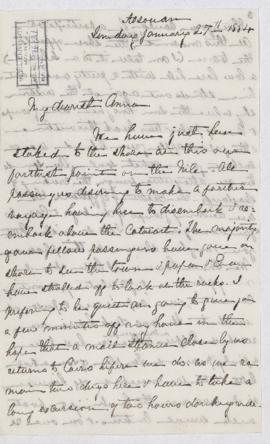 Assouan
Sunday January 27th 1884
My dearest Anna
We have just been
staked to the shore in this our
furthest point on the Nile. All
passengers desiring to make a further
voyage having here to disembark & re-
embark above the Cataract. The majority
of our fellow passengers have gone on
shore to see the town &
have strolled off to look at the rocks. I
preferring to be quiet am going to pass
a few minutes of my time in the
hope that a mail steamer close by us
returns to Cairo before we do as we re-
main two days here & have to take a
long excursion of two hours donkey ride